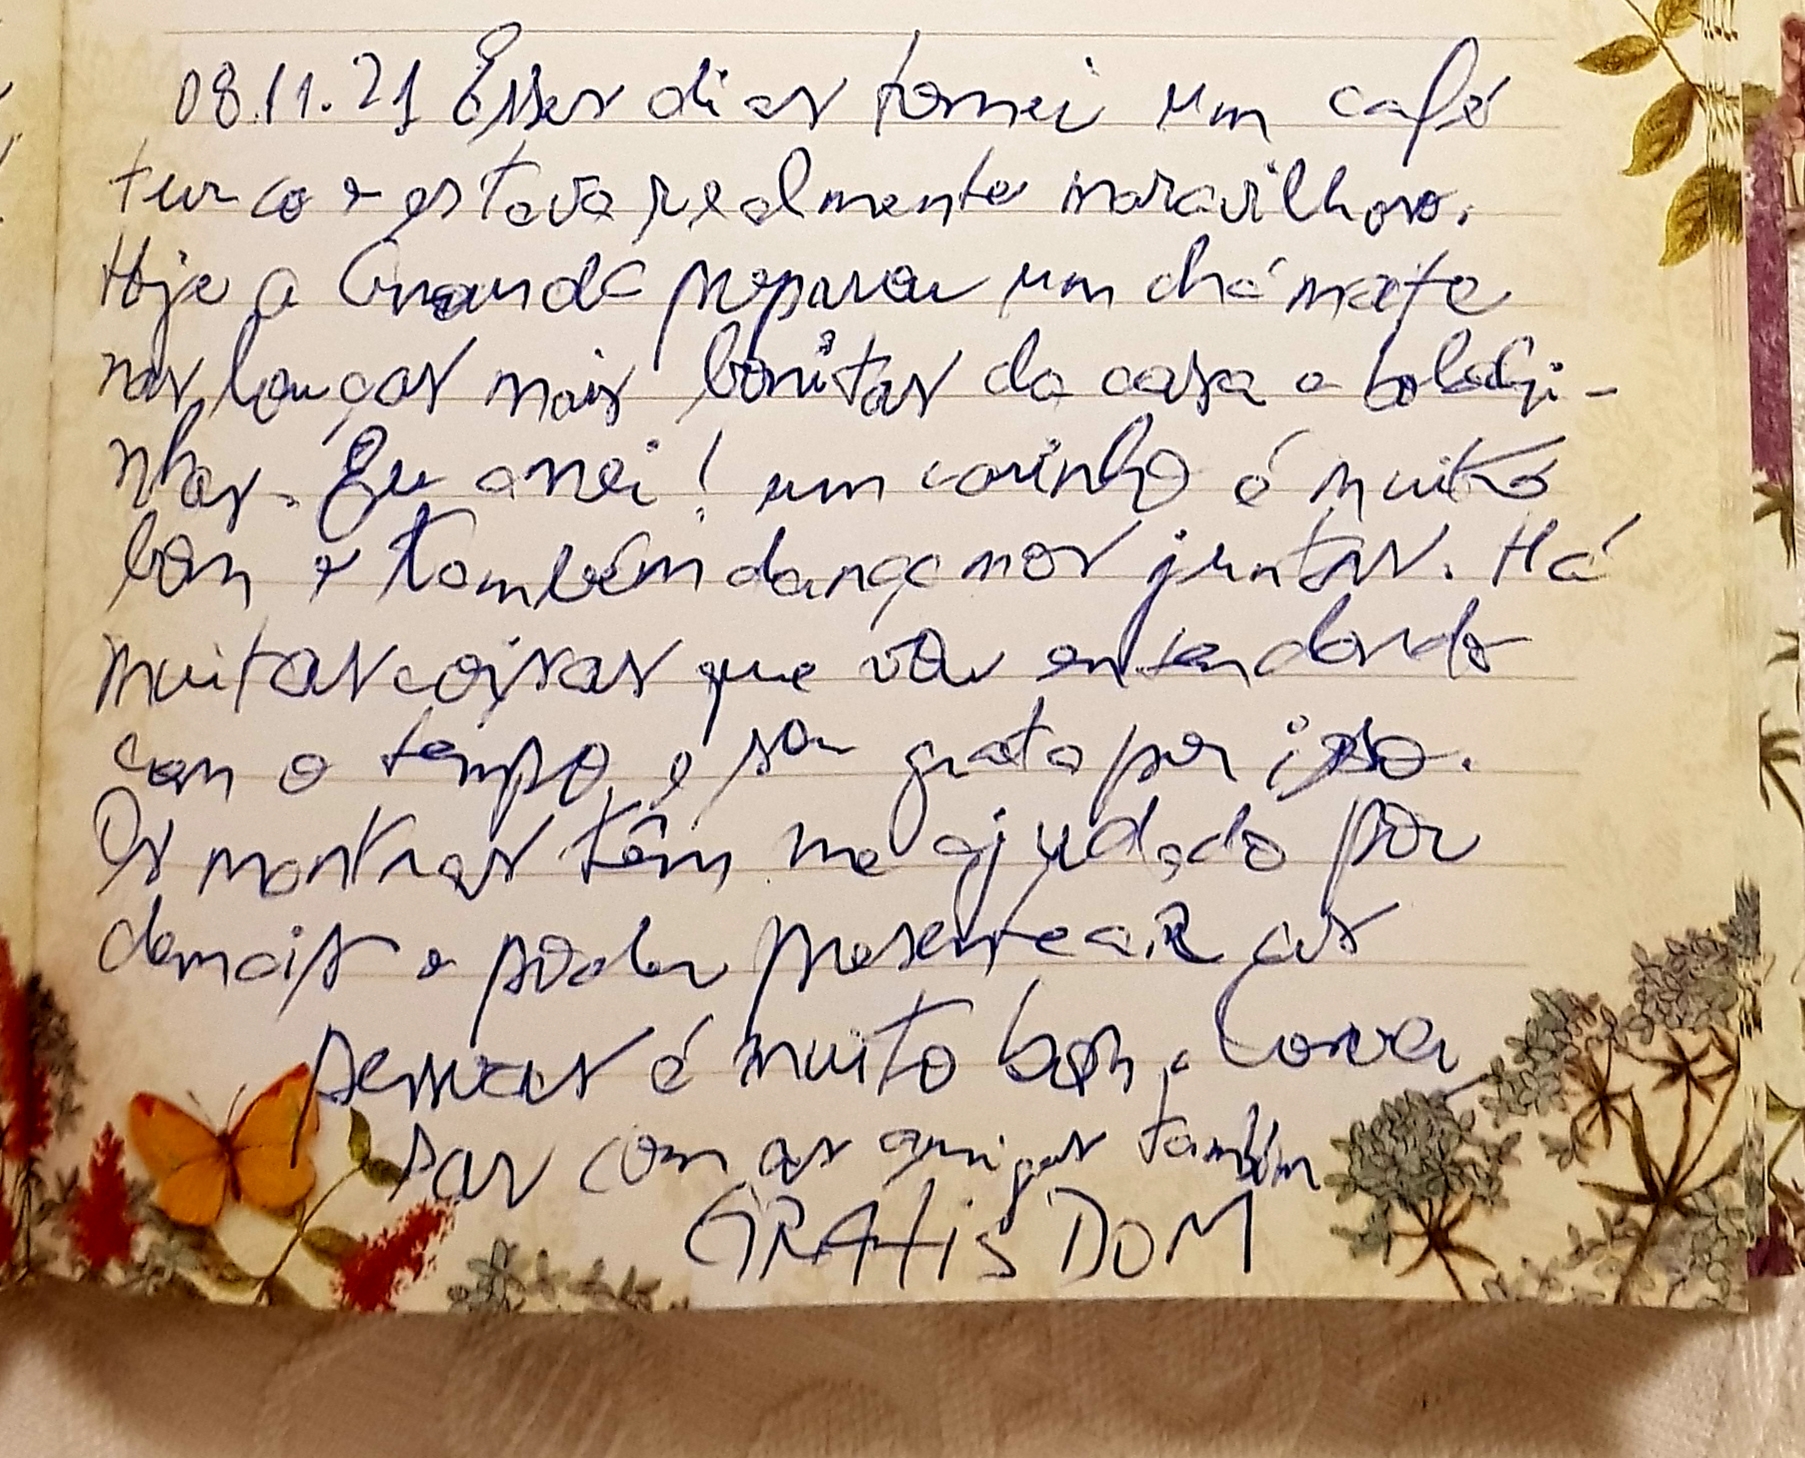 08.11.21 Esses dias tomei um café
turco e estava realmente maravilhoso.
Hoje a preparou um chá mate
nas louças mais bonitas da casa e bolachi-
nhas. Eu amei! um carinho é muito
bom e também dançamos juntas. Há
muitas coisas que vou entendendo
com o tempo, e sou grata por isso.
Os mantras têm me ajudado por
demais e poder presentear as
pessoas é muito bom, e conver
sar com as amigas também
GRATIS DOM